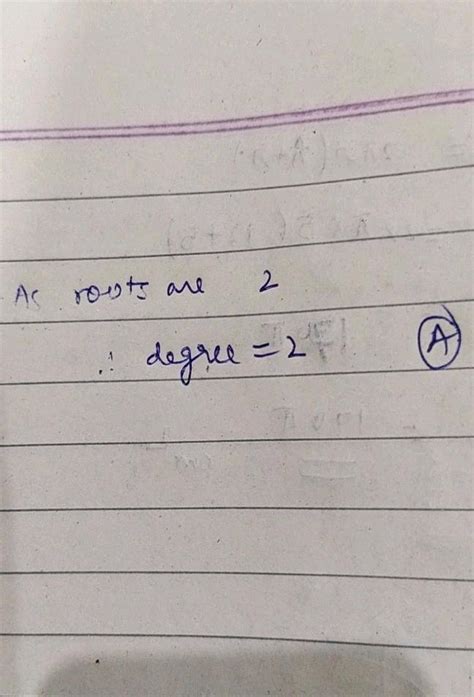 As roots are 2
∴ degree = 2 A